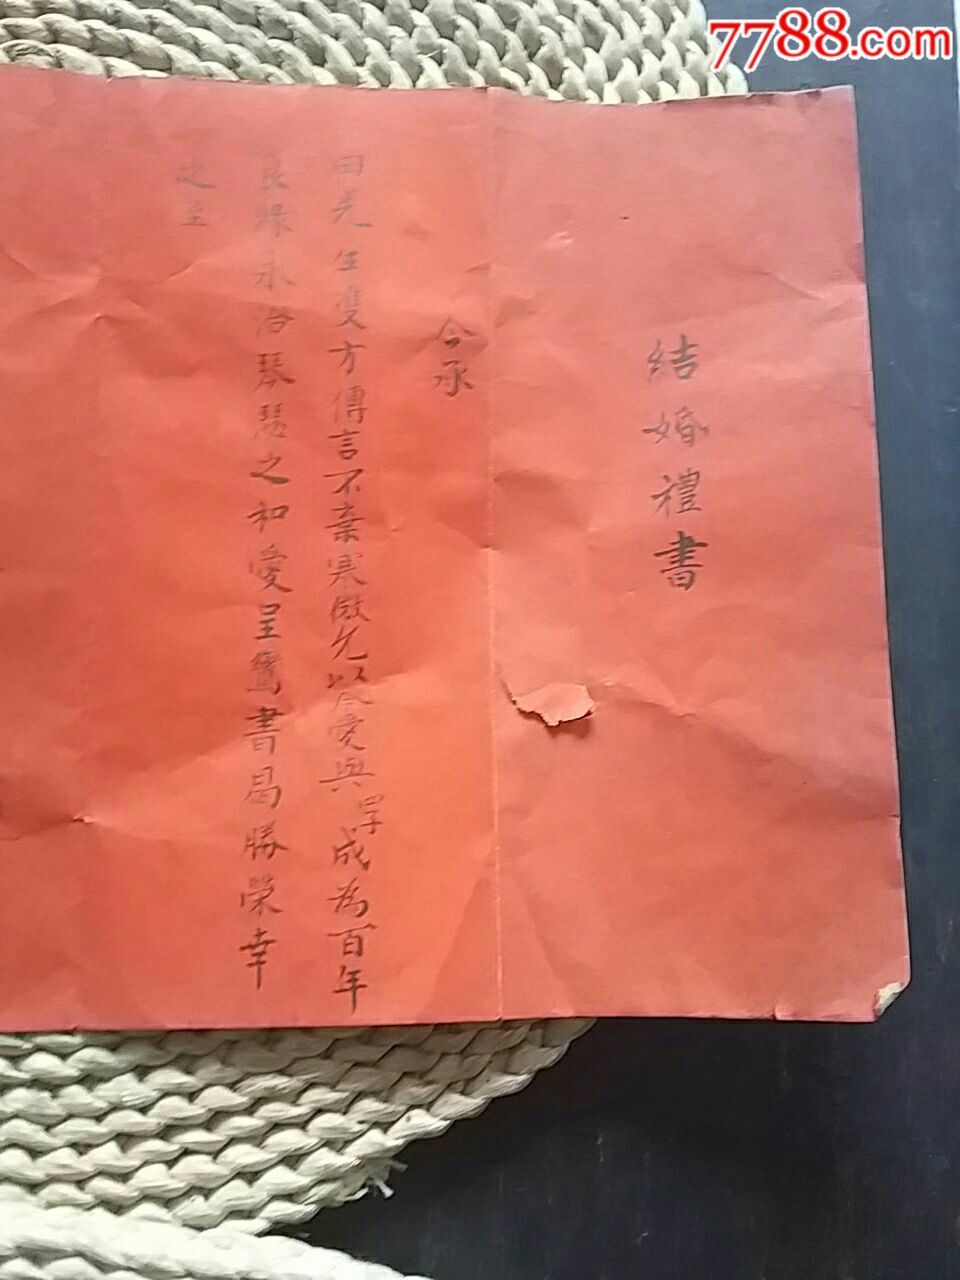 7788.com
結婚禮書
今承
田先生雙方傳言不棄寒微允以令愛與四子成為百年
良緣永洽琴瑟之和爰呈鸞書曷勝榮幸
之至